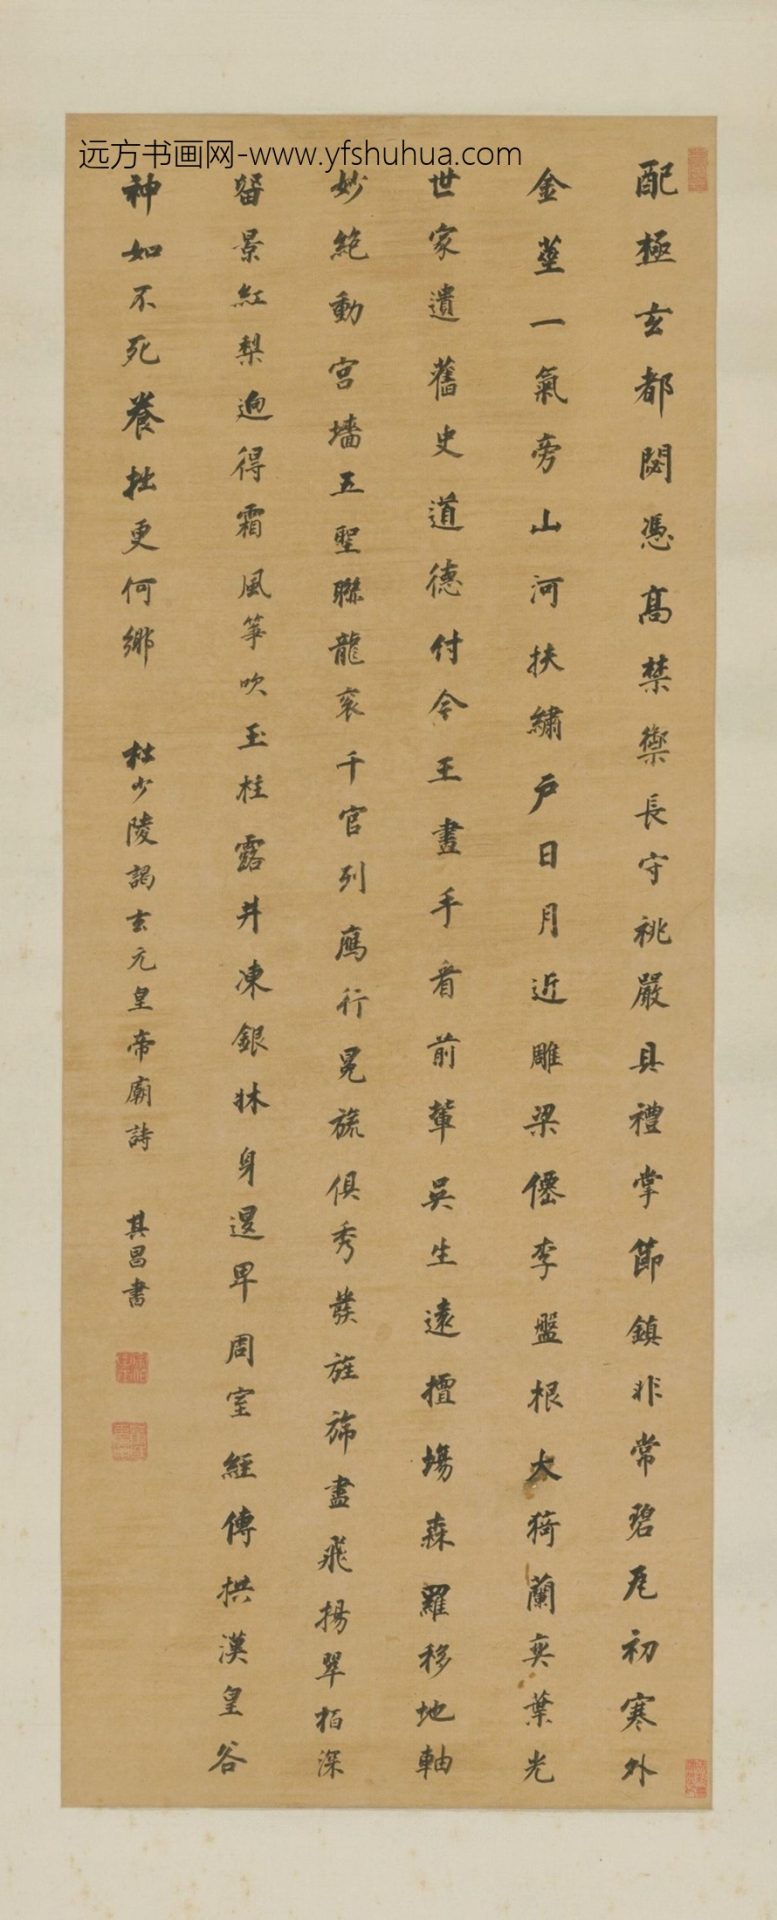 远方书画网-www.yfshuhua.com
配極玄都閟憑高禁禦長守祧嚴具禮掌節鎮非常碧瓦初寒外
金莖一氣旁山河扶繡戶日月近雕梁僊李盤根大猗蘭奕葉光
世家遺舊史道德付今王畫手看前輩吳生遠擅場森羅移地軸
妙絕動宮墻五聖聯龍衮千官列鴈行冕旒俱秀發旌旆盡飛揚翠柏深
留景紅梨迥得霜風筝吹玉柱露井凍銀牀身退卑周室經傳拱漢皇谷
神如不死養拙更何鄉 杜少陵謁玄元皇帝廟詩 其昌書